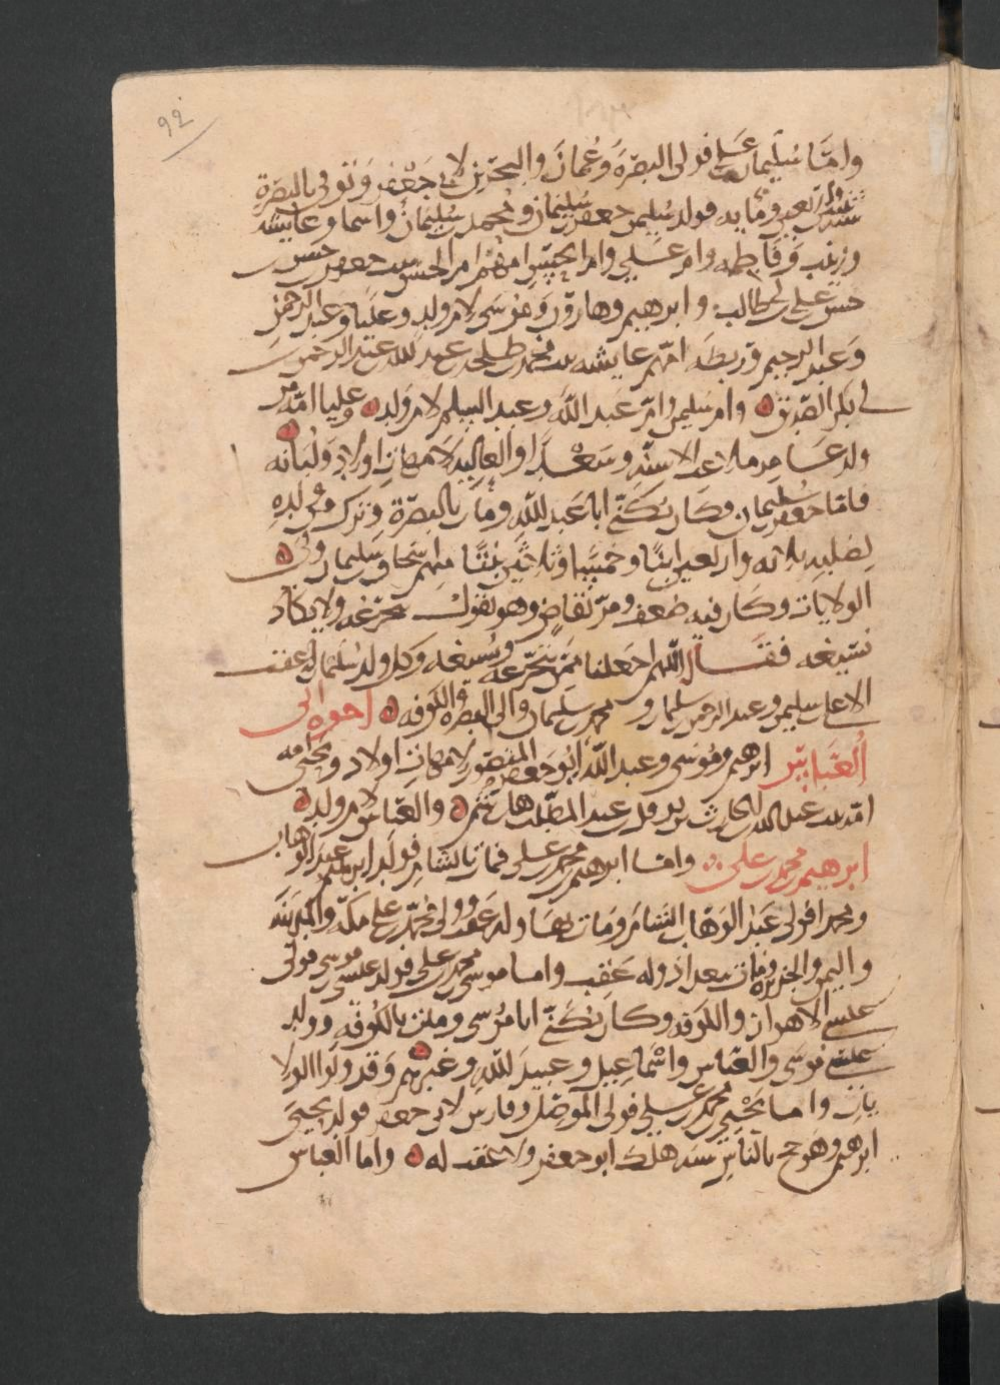 92
واما سليمان بن علي فولى البصرة وعمان والبحرين لابي جعفر وتوفي بالبصرة
سنة اثنتين واربعين ومايه فولد سليمن جعفر بن سليمان ومحمد بن سليمان واسما وعايشه
وزينب وفاطمه وام علي وام الحسن امهم ام الحسن بنت جعفر بن حسن بن
حسن بن علي بن ابي طالب وابرهيم وهارون وموسى لام ولد وعليا وعبد الرحمن
وعبد الرحيم وريطه امهم عايشه بنت محمد بن طلحه بن عبد الله بن عبد الرحمن بن
ابي بكر الصديق وام سليمن وام عبد الله وعبد السلم لام ولد وعليا امه من
ولد عامر ملاعب الاسنه وسعدا والعاليه لامهات اولاد ولبابه
فاما جعفر بن سليمان وكان يكنى ابا عبد الله ومات بالبصرة وترك من ولده
لصلبه ثلثه واربعين ابنا وخمسا وثلاثين بنتا منهم اسحاق بن سليمان ولى
الولايات وكان فيه ضعف ومر بقاض وهو يقول يتجرعه ولا يكاد
يسيغه فقال اللهم اجعلنا ممن يتجرعه ويسيغه وكل ولد سليمان له عقب
الا علي بن سليمن وعبد الرحمن بن سليمان ومحمد بن سليمان والي البصره والكوفه اخوه ابي
العباس ابرهيم وموسى وعبد الله ابو جعفر المنصور لامهات اولاد ويحيى امه
امه بنت عبد الله بن الحارث بن نوفل بن عبد المطلب بن هاشم والعباس لام ولد
ابرهيم بن محمد بن علي واما ابرهيم بن محمد بن علي فمات بالشام فولد ابرهيم عبد الوهاب
ومحمدا فولى عبد الوهاب الشام ومات بها وله عقب وولى محمد بن علي مكة والمدينة
واليمن والجزيره ومات ببغداذ وله عقب واما موسى بن محمد بن علي فولد عيسى بن موسى فولى
عيسى الاهواز والكوفه وكان يكنى ابا موسى ومات بالكوفه وولد
عيسى موسى والعباس واسماعيل وعبيد الله وغيرهم وقد ولوا الولا
يات واما يحيى بن محمد بن علي فولى الموصل وفارس لابي جعفر فولد يحيى
ابرهيم وهو حج بالناس سنه هلك ابو جعفر ولا عقب له واما العباس